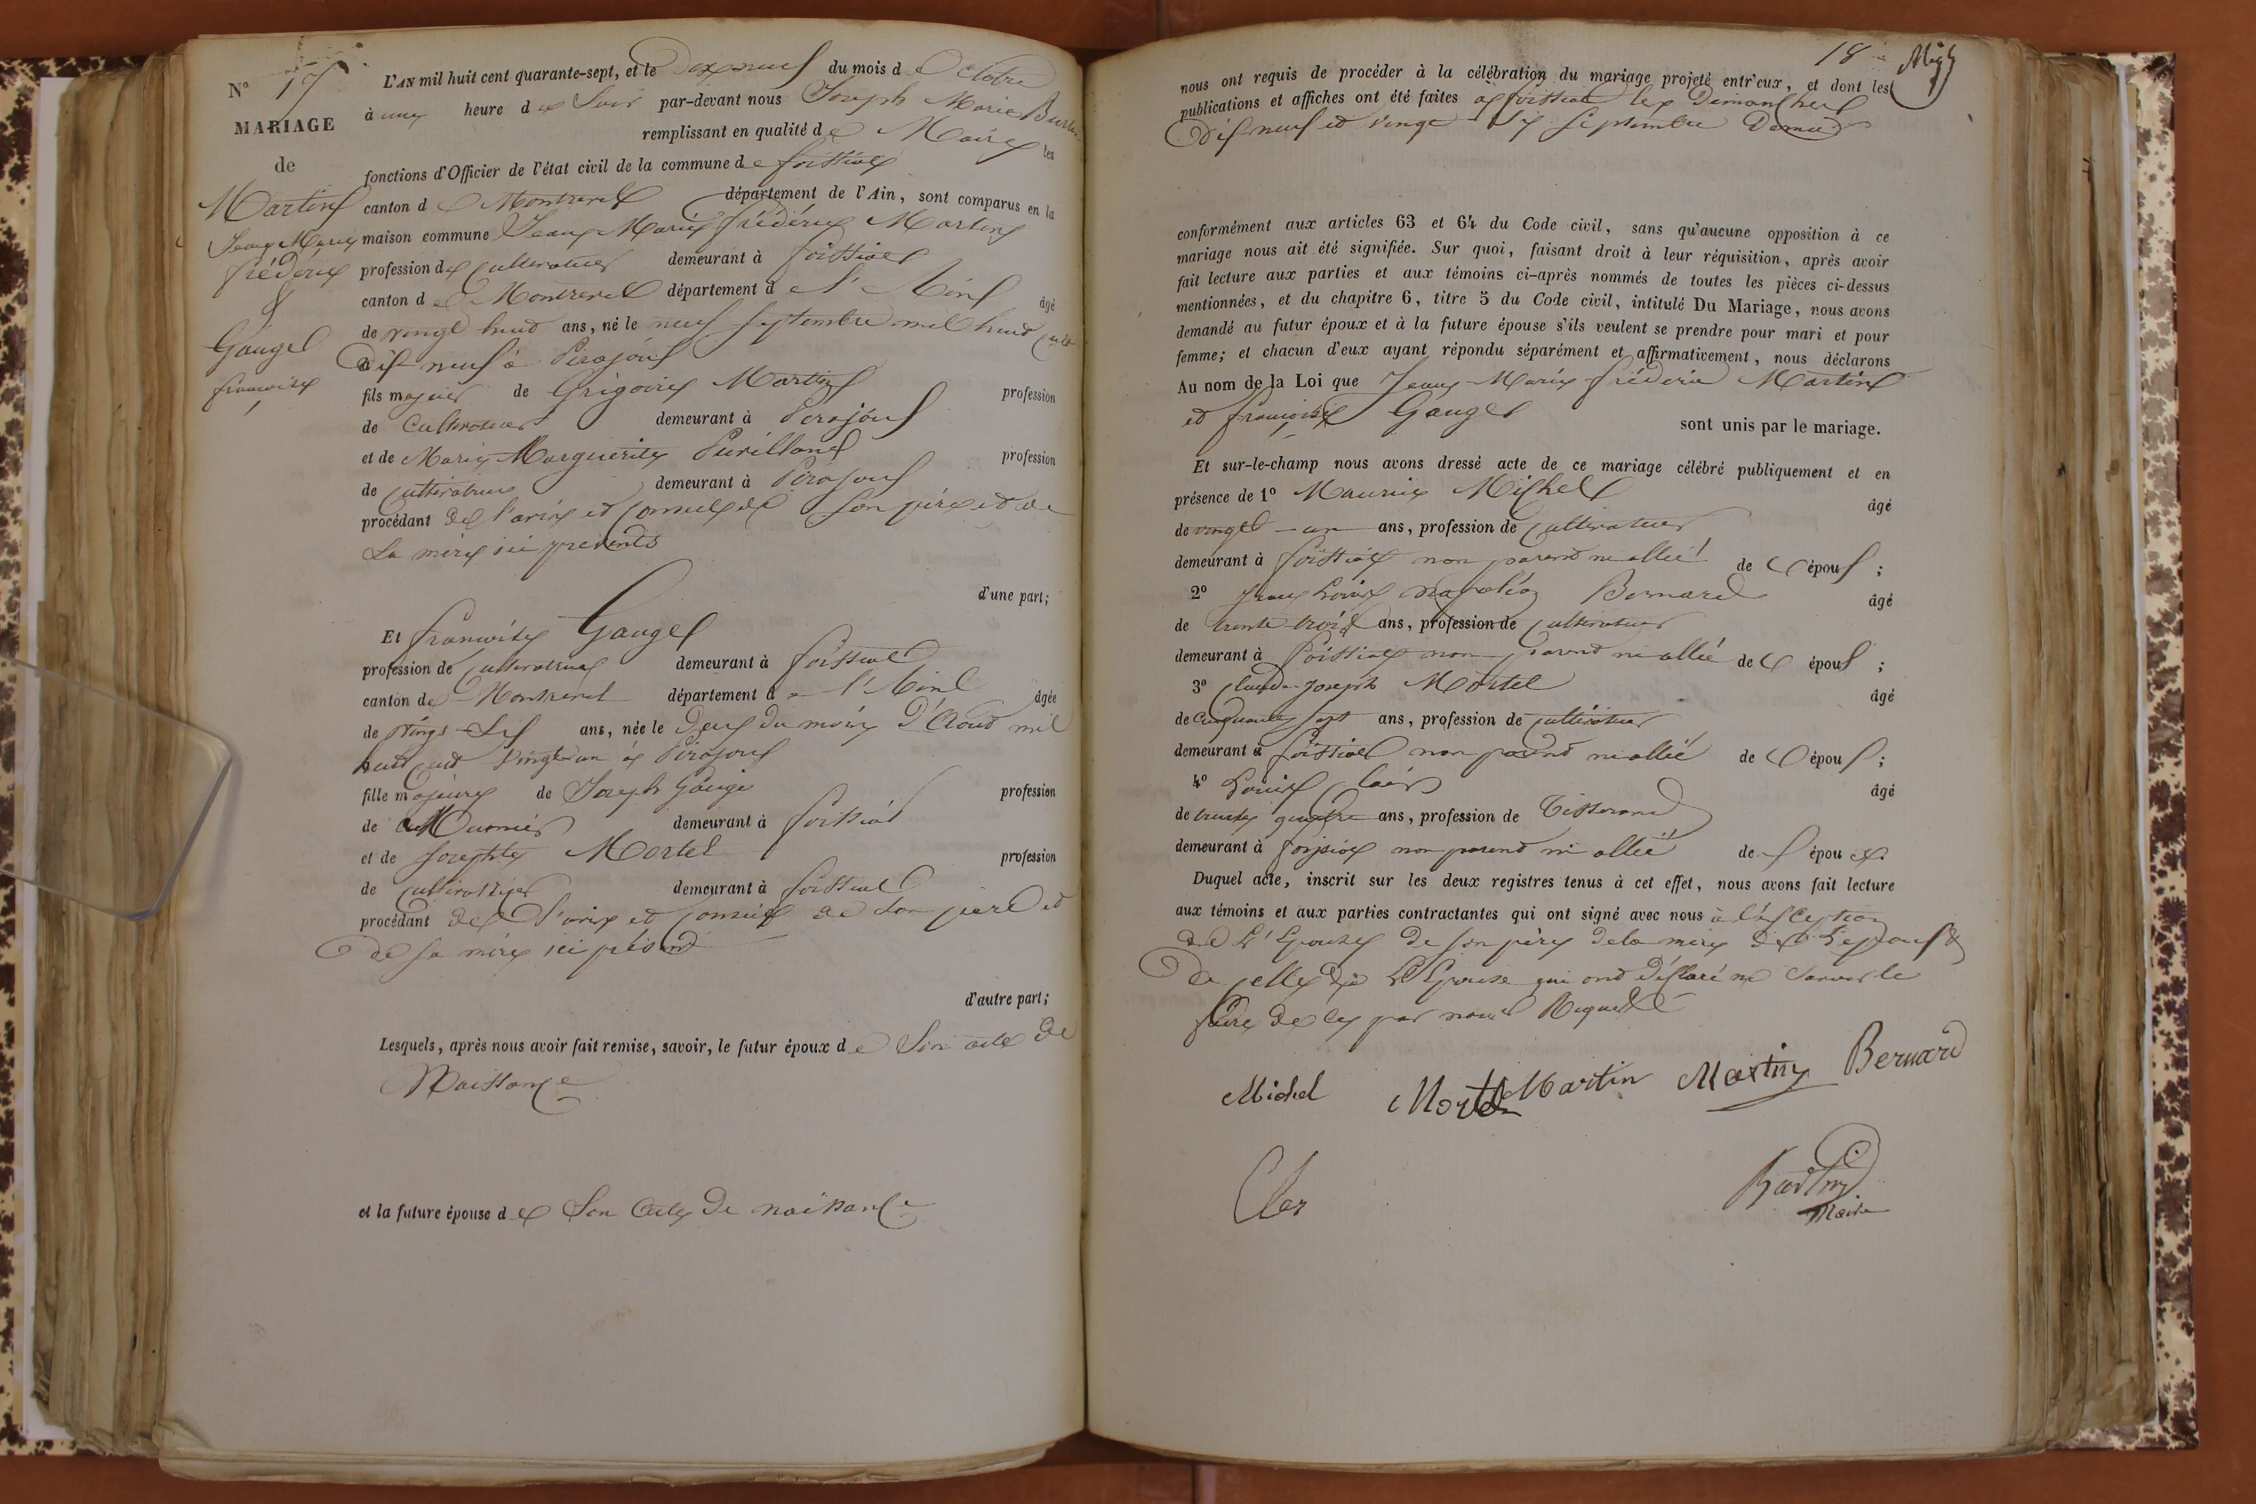 N° 17
MARIAGE
de
Martin
Jean Marie
frédéric
&
Gauget
francoise
L'AN mil huit cent quarante-sept, et le dix neuf du mois d'Octobre
à une heure du Soir par-devant nous Joseph Marie
remplissant en qualité de Maire les
fonctions d'Officier de l'état civil de la commune de foissiat
canton de Montrevel département de l'Ain, sont comparus en la
maison commune Jean Marie frédéric Martin
profession de cultivateur demeurant à foissiat
canton de Montrevel département de l'Ain âgé
de vingt huit ans, né le neuf Septembre mil huit cent
dix neuf à Pirajoux
fils majeur de Grégoire Martin profession
de Cultivateur demeurant à Pirajoux
et de Marie Marguerite profession
de cultivateur demeurant à Pirajoux
procédant de l'avis et conseil de son père et de
sa mère ici présents
d'une part;
Et francoise Gauget
profession de cultivateur demeurant à foissiat
canton de Montrevel département de l'Ain âgée
de vingt six ans, née le deux du mois d'Aout mil
huit cent vingt un à Pirajoux
fille majeure de Joseph Gauge profession
de Meunier demeurant à foissiat
et de Josephte Mortel profession
de cultivatrice demeurant à foissiat
procédant de l'avis et conseil de son père et
de sa mère ici présent
d'autre part;
Lesquels, après nous avoir fait remise, savoir, le futur époux de Son acte de
Naissance
et la future épouse de Son acte de naissance
18
nous ont requis de procéder à la célébration du mariage projeté entr'eux, et dont les
publications et affiches ont été faites à foissiat les Dimanches
dix neuf et vingt Septembre Dernier
conformément aux articles 63 et 64 du Code civil, sans qu'aucune opposition à ce
mariage nous ait été signifiée. Sur quoi, faisant droit à leur réquisition, après avoir
fait lecture aux parties et aux témoins ci-après nommés de toutes les pièces ci-dessus
mentionnées, et du chapitre 6, titre 5 du Code civil, intitulé Du Mariage, nous avons
demandé au futur époux et à la future épouse s'ils veulent se prendre pour mari et pour
femme; et chacun d'eux ayant répondu séparément et affirmativement, nous déclarons
Au nom de la Loi que Jean Marie fréderic Martin
et francoise Gauget sont unis par le mariage.
Et sur-le-champ nous avons dressé acte de ce mariage célébré publiquement et en
présence de 1° Maurice Michel âgé
de vingt un ans, profession de cultivateur
demeurant à foissiat non parent ni allié de l'époux;
2° Jean Louis Napoléon Bernard âgé
de trente trois ans, profession de cultivateur
demeurant à foissiat non parent ni allié de l'époux;
3° Claude Joseph Mortel âgé
de cinquante sept ans, profession de cultivateur
demeurant à foissiat non parent ni allié de l'époux;
4° Louis âgé
de trente quatre ans, profession de Tisserand
demeurant à foissiat non parent ni allié de l'époux.
Duquel acte, inscrit sur les deux registres tenus à cet effet, nous avons fait lecture
aux témoins et aux parties contractantes qui ont signé avec nous à l'exception
de l'Epouse de son père de la mère de l'époux &
de celle de l'Epouse qui ont déclaré ne savoir le
faire de ce par nous Requis
Michel Mortel Martin Martin Bernard
Cler
Maire